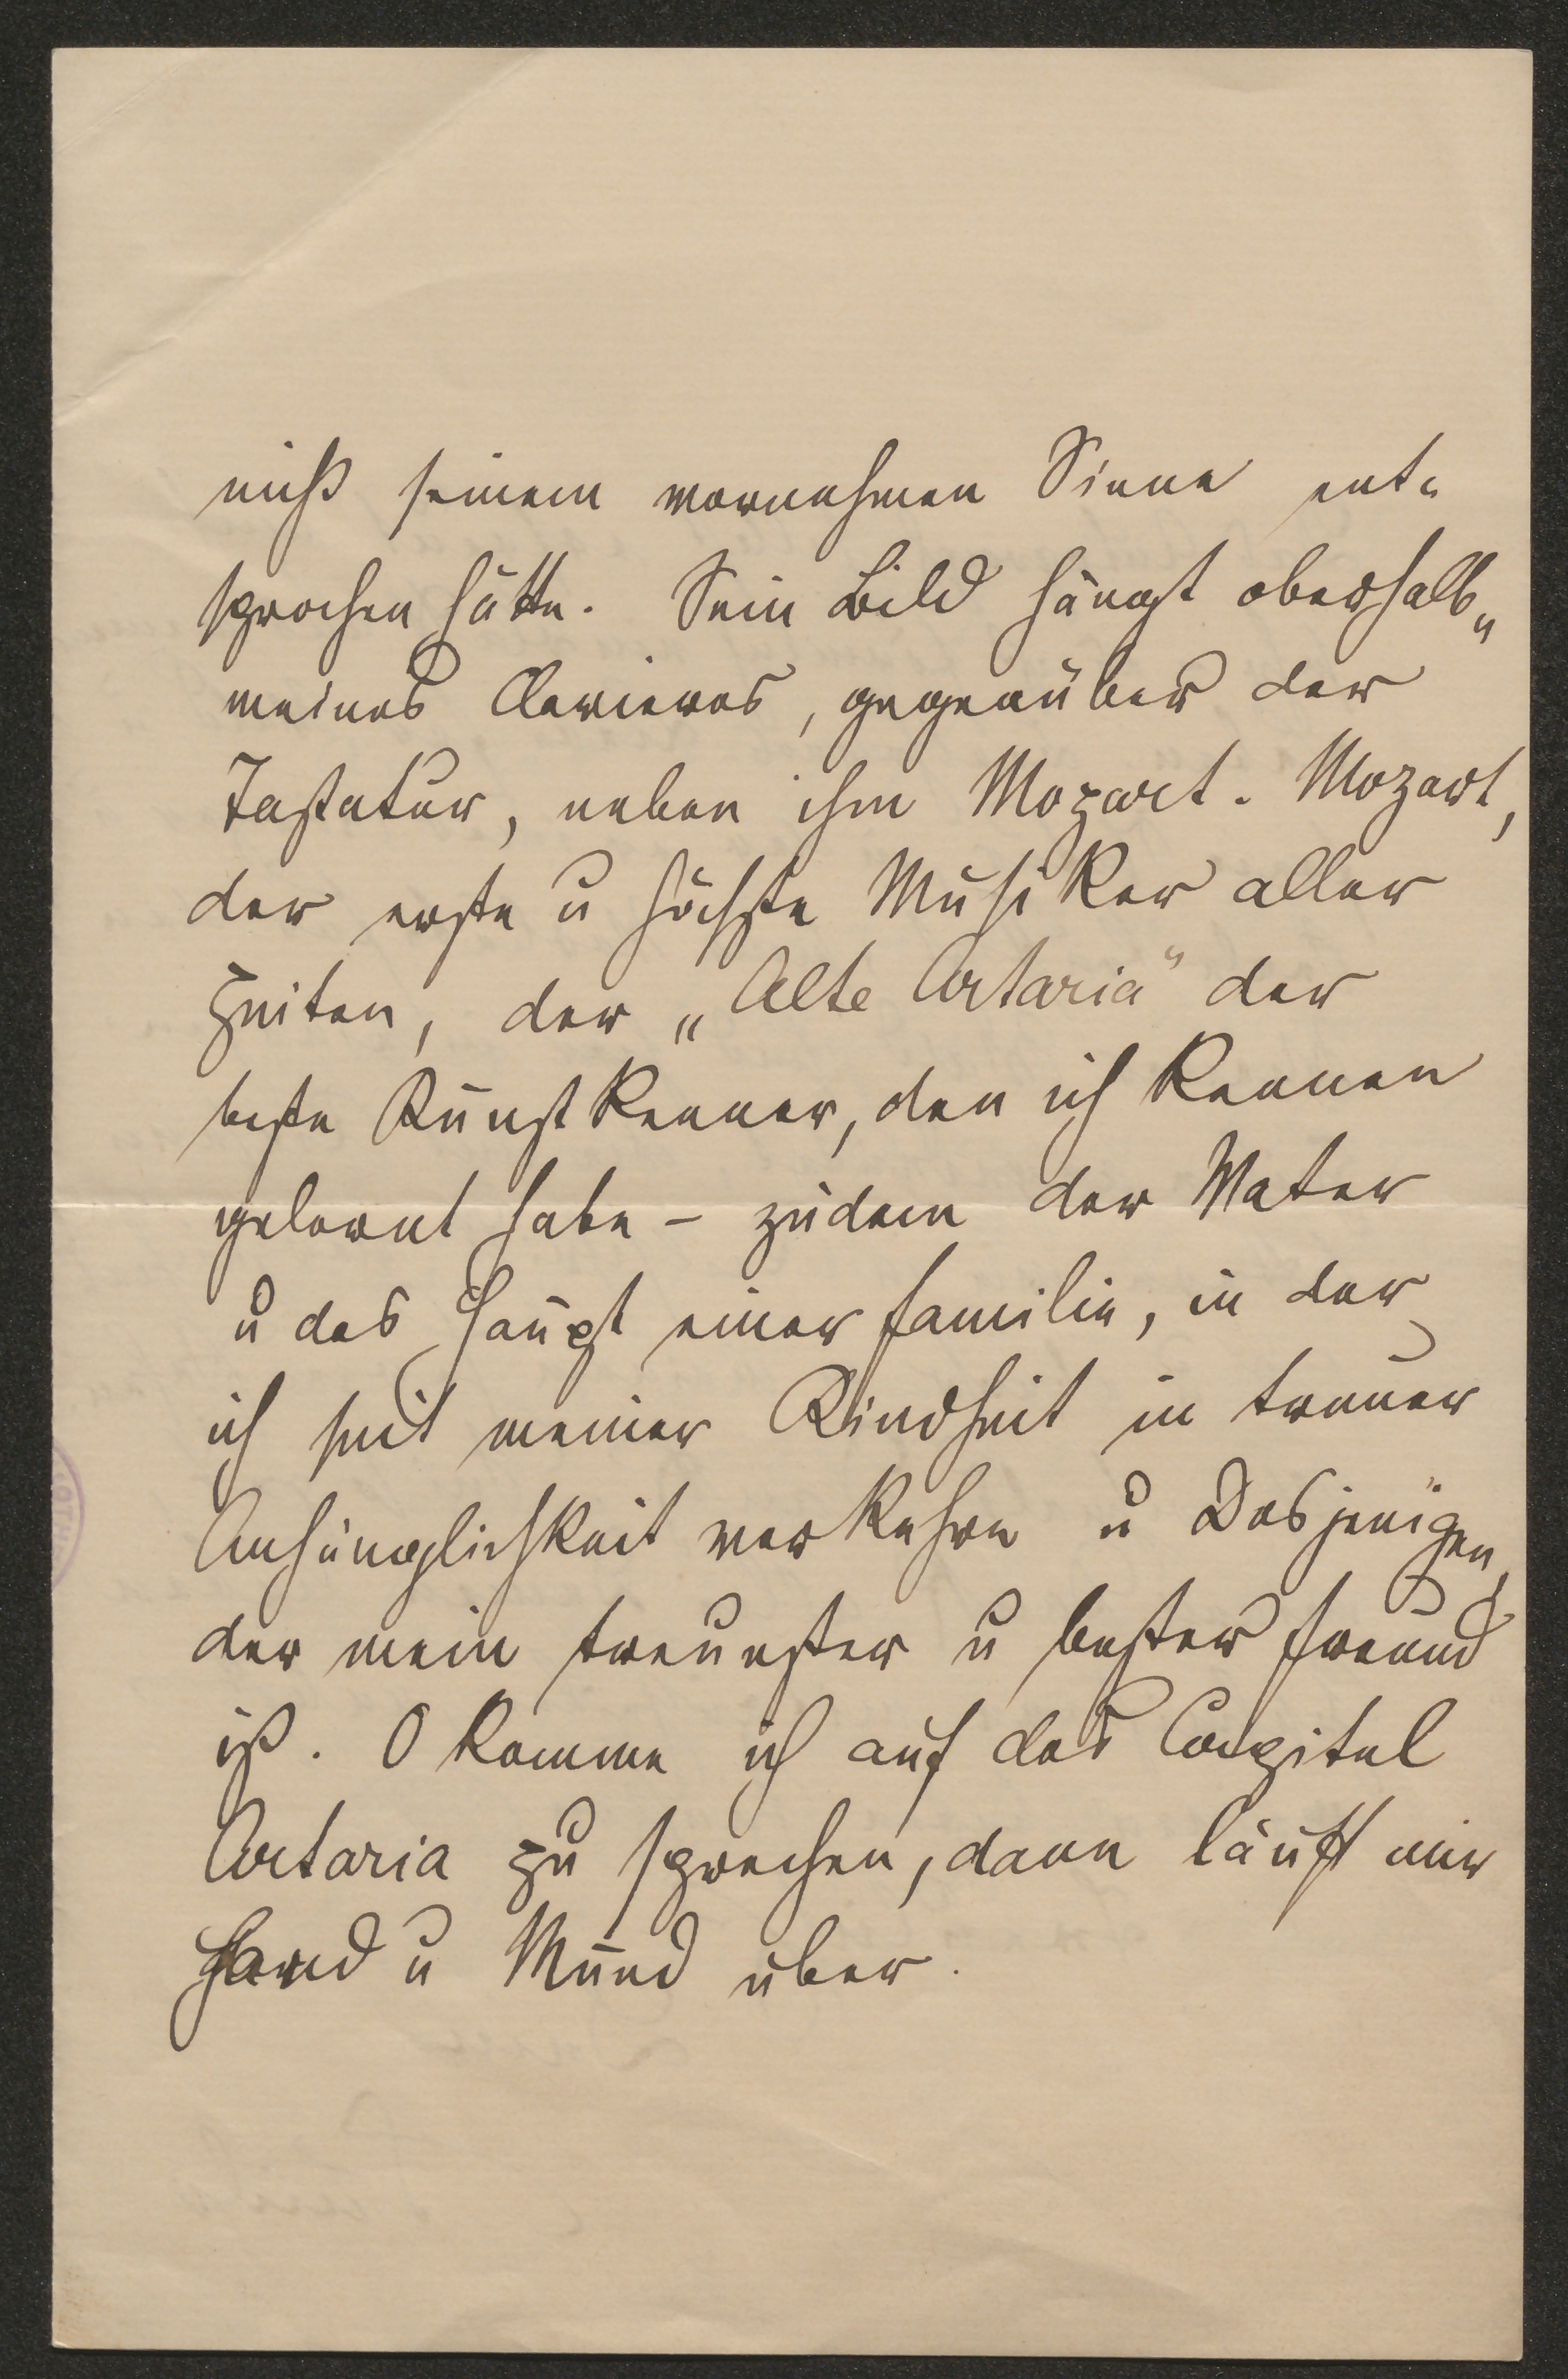 nicht seinem vornehmen Sinne ent-
sprochen hätte. Sein Bild hängt oberhalb
meines Clavieres, gegenüber der
Tastatur, neben ihm Mozart. Mozart,
der erste u höchste Musiker aller
Zeiten, der „Alte Artaria" der
beste Kunstkenner, den ich kennen
gelernt habe – zudem der Vater
u das Haupt einer Familie, in der
ich seit meiner Kindheit in treuer
Anhänglichkeit verkehre u Desjenigen,
der mein treuester u bester Freund
ist. O komme ich auf das Capitel
Artaria zu sprechen, dann läuft mir
Hand u Mund über.